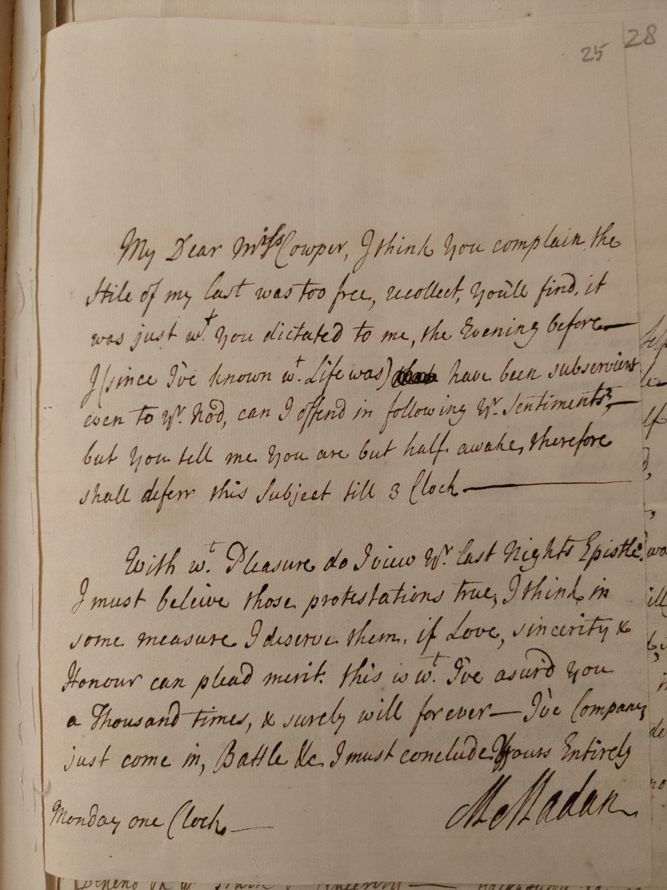 25 28
My Dear Mrs Cowper, I think you complain the
Stile of my last was too free, recollect, you'll find, it
was just wt. you dictated to me, the Evening before—
I (since I've known wt. Life was) have been subservient
even to Yr. Nod, can I offend in following Yr. Sentiments?—
but you tell me you are but half awake, therefore
shall deferr this Subject till 3 Clock—
With wt. Pleasure do I view Yr. last Nights Epistle.
I must beleive those protestations true, I think in
some measure I deserve them, if Love, sincerity &
Honour can plead merit. this is wt. I've asur'd you
a Thousand times, & surely will for ever— I've Company
just come in, Battle &c I must conclude Yours Entirely
Monday one Clock—
M Madan